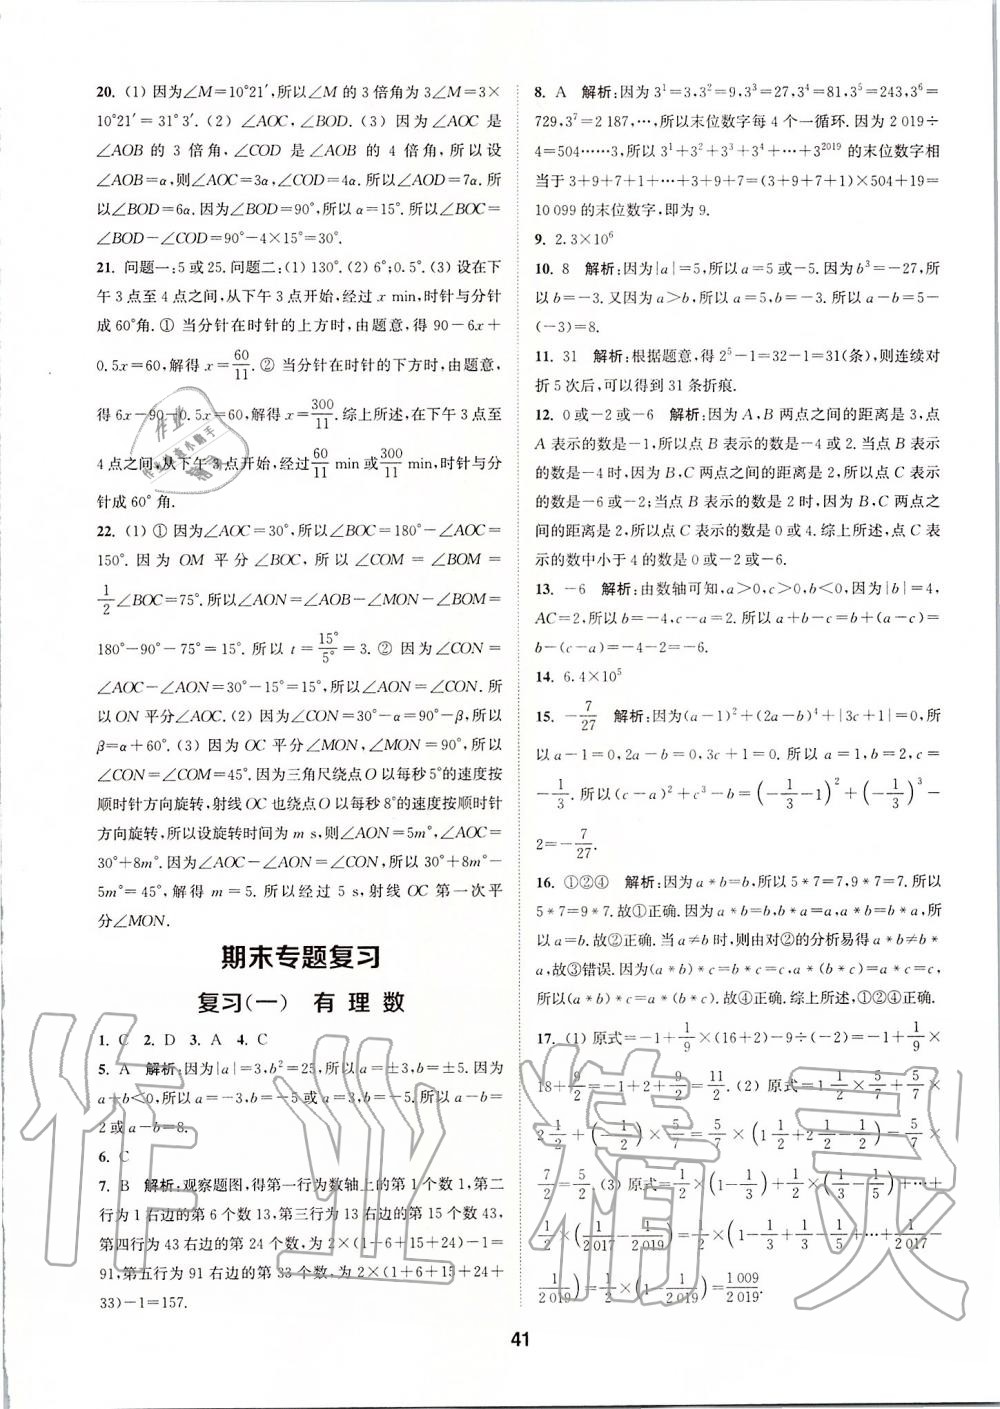 20. (1) 因为∠M=10°21′,所以∠M 的 3 倍角为 3∠M=3×
10°21′=31°3′. (2) ∠AOC,∠BOD. (3) 因为∠AOC 是
∠AOB 的 3 倍角,∠COD 是∠AOB 的 4 倍角,所以设
∠AOB=α,则∠AOC=3α,∠COD=4α.所以∠AOD=7α.所
以∠BOD=6α.因为∠BOD=90°,所以 α=15°.所以∠BOC=
∠BOD-∠COD=90°-4×15°=30°.
21. 问题一:5 或 25.问题二:(1) 130°. (2) 6°;0.5°. (3) 设在下
午 3 点至 4 点之间,从下午 3 点开始,经过 x min,时针与分针
成 60°角.① 当分针在时针的上方时,由题意,得 90-6x+
0.5x=60,解得 x=60/11.② 当分针在时针的下方时,由题意,
得 6x-90-0.5x=60,解得 x=300/11.综上所述,在下午 3 点至
4 点之间,从下午 3 点开始,经过60/11 min 或300/11 min,时针与分
针成 60°角.
22. (1) ① 因为∠AOC=30°,所以∠BOC=180°-∠AOC=
150°.因为 OM 平分∠BOC,所以∠COM=∠BOM=
1/2∠BOC=75°.所以∠AON=∠AOB-∠MON-∠BOM=
180°-90°-75°=15°.所以 t=15°/5°=3.② 因为∠CON=
∠AOC-∠AON=30°-15°=15°,所以∠AON=∠CON.所
以 ON 平分∠AOC.(2) 因为∠CON=30°-α=90°-β,所以
β=α+60°.(3) 因为 OC 平分∠MON,∠MON=90°,所以
∠CON=∠COM=45°.因为三角尺绕点 O 以每秒 5°的速度按
顺时针方向旋转,射线 OC 也绕点 O 以每秒 8°的速度按顺时针
方向旋转,所以设旋转时间为 m s,则∠AON=5m°,∠AOC=
30°+8m°.因为∠AOC-∠AON=∠CON,所以 30°+8m°-
5m°=45°,解得 m=5.所以经过 5 s,射线 OC 第一次平
分∠MON.
期末专题复习
复习(一) 有理数
1. C 2. D 3. A 4. C
5. A 解析:因为|a|=3,b²=25,所以 a=±3,b=±5.因为
a+b<0,所以 a=-3,b=-5 或 a=3,b=-5.所以 a-b=
2 或 a-b=8.
6. C
7. B 解析:观察题图,得第一行为数轴上的第 1 个数 1,第二
行为 1 右边的第 6 个数 13,第三行为 13 右边的第 15 个数 43,
第四行为 43 右边的第 24 个数,为 2×(1+6+15+24)-1=
91,第五行为 91 右边的第 33 个数,为 2×(1+6+15+24+
33)-1=157.
8. A 解析:因为 3¹=3,3²=9,3³=27,3⁴=81,3⁵=243,3⁶=
729,3⁷=2 187,…,所以末位数字每 4 个一循环.因为 2 019÷
4=504……3,所以 3¹+3²+3³+3⁴+…+3²⁰¹⁹ 的末位数字相
当于 3+9+7+1+…+3+9+7=(3+9+7+1)×504+19=
10 099 的末位数字,即为 9.
9. 2.3×10⁶
10. 8 解析:因为|a|=5,所以 a=5 或-5.因为 b³=-27,所
以 b=-3.又因为 a>b,所以 a=5,b=-3.所以 a-b=5-
(-3)=8.
11. 31 解析:根据题意,得 2⁵-1=32-1=31(条),则连续对
折 5 次后,可以得到 31 条折痕.
12. 0 或-2 或-6 解析:因为 A,B 两点之间的距离是 3,点
A 表示的数是-1,所以点 B 表示的数是-4 或 2.当点 B 表示
的数是-4 时,因为 B,C 两点之间的距离是 2,所以点 C 表示的
数是-6 或-2;当点 B 表示的数是 2 时,因为 B,C 两点之
间的距离是 2,所以点 C 表示的数是 0 或 4.综上所述,点 C 表
示的数中小于 4 的数是 0 或-2 或-6.
13. -6 解析:由数轴可知,a>0,c>0,b<0,因为|b|=4,
AC=2,所以 b=-4,c-a=2.所以 a+b-c=b+(a-c)=
b-(c-a)=-4-2=-6.
14. 6.4×10⁵
15. -7/27 解析:因为(a-1)²+(2a-b)⁴+|3c+1|=0,所
以 a-1=0,2a-b=0,3c+1=0.所以 a=1,b=2,c=
-1/3.所以(c-a)²+c³-b=(-1/3-1)²+(-1/3)³-
2=-7/27.
16. ①②④ 解析:因为 a*b=b,所以 5*7=7,9*7=7.所以
5*7=9*7.故①正确.因为 a*b=b,b*a=a,a*b=b*a,所
以 a=b.故②正确.当 a≠b 时,则由对②的分析易得 a*b≠b*
a,故③错误.因为(a*b)*c=b*c=c,a*(b*c)=a*c=c,
所以(a*b)*c=a*(b*c).故④正确.综上所述,①②④正确.
17. (1) 原式=-1+1/9×(16+2)-9÷(-2)=-1+1/9×
18+9/2=-1+2+9/2=11/2.(2) 原式=1 1/2×5/7+5/7×
2 1/2+(-1/2)×5/7=5/7×(1 1/2+2 1/2-1/2)=5/7×
7/2=5/2.(3) 原式=1/2×(1-1/3)+1/2×(1/3-1/5)+…+
1/2×(1/2 017-1/2 019)=1/2×(1-1/3+1/3-1/5+…+1/2 017-
1/2 019)=1/2×(1-1/2 019)=1 009/2 019.
41
作业精灵